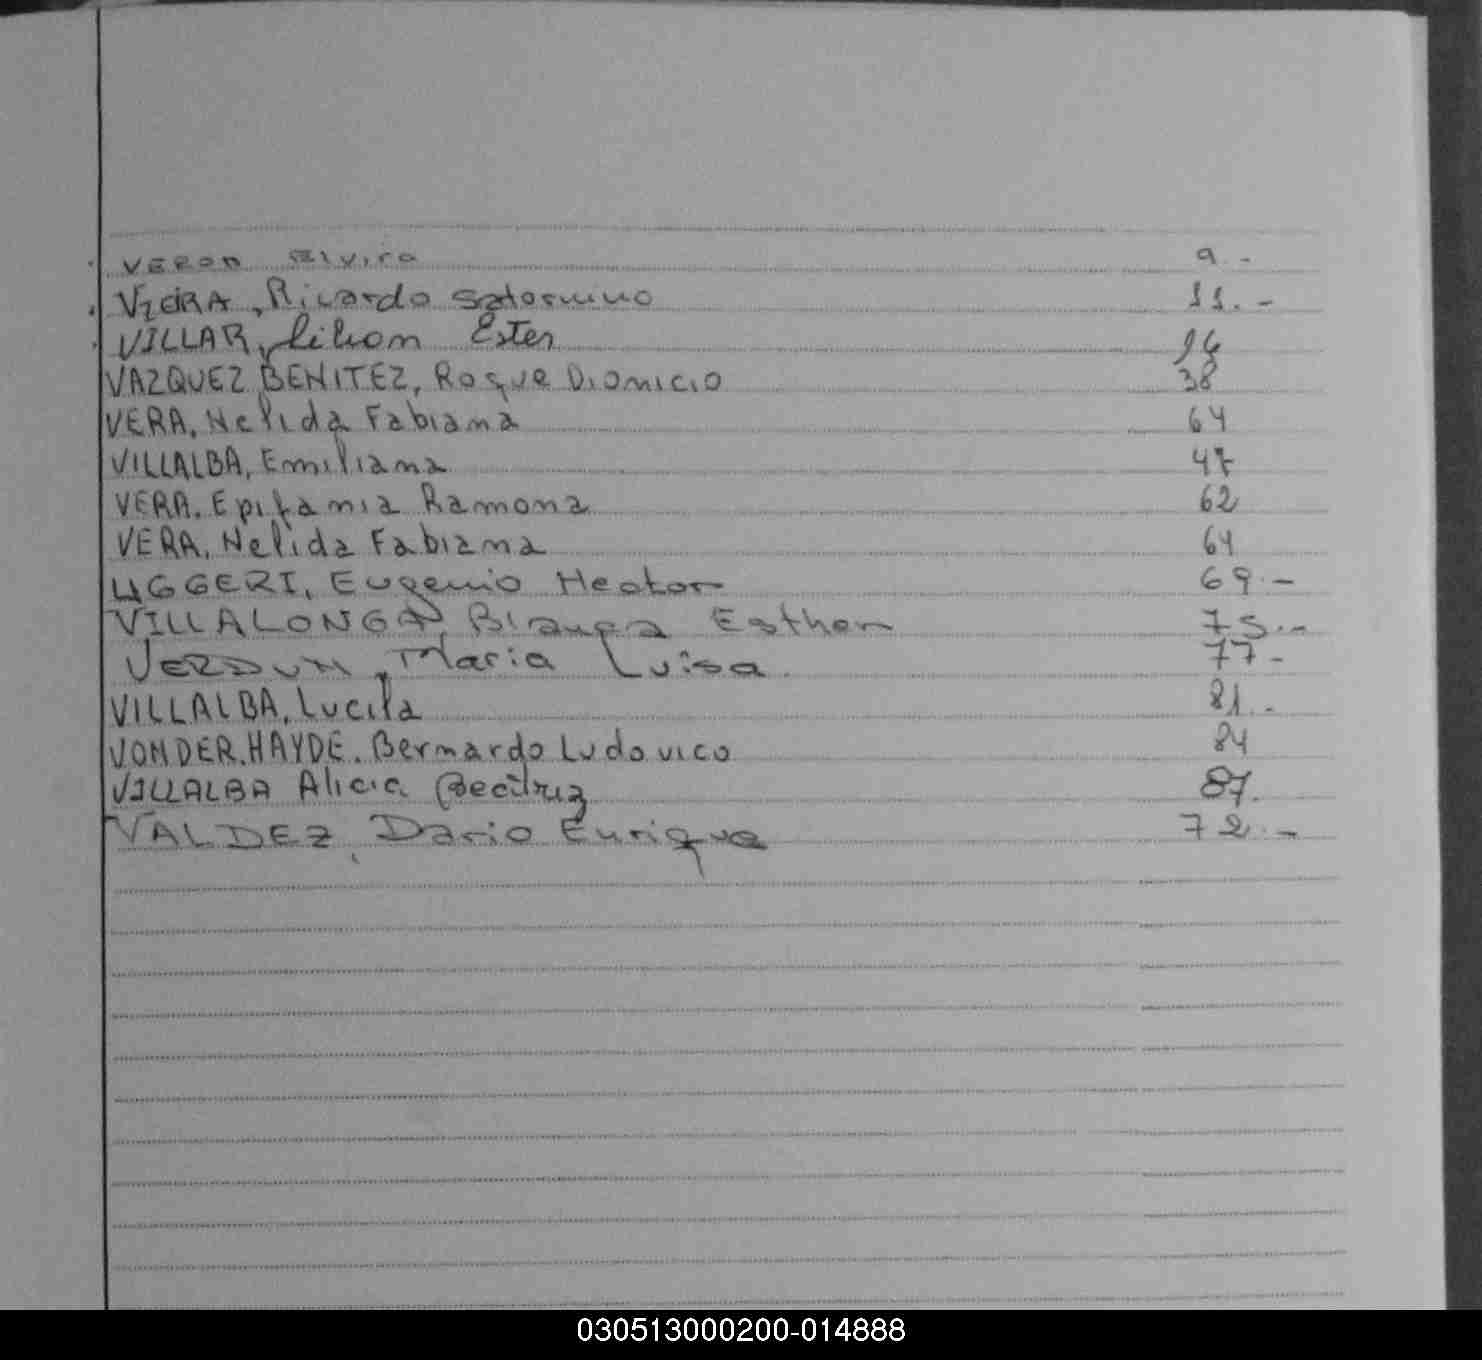 VERON Elvira 9.-
VIEIRA, Ricardo Satornino 11.-
VILLAR, Lilion Ester
VAZQUEZ BENITEZ, Roque Dionicio 38
VERA, Nelida Fabiana 64
VILLALBA, Emiliana 47
VERA, Epifania Ramona 62
VERA, Nelida Fabiana 64
UGGERI, Eugenio Hector 69.-
VILLALONGA, Blanca Esther 75.-
VERDUN, Maria Luisa 77-
VILLALBA, Lucila 81.-
VONDER.HAYDE. Bernardo Ludovico 84
VILLALBA Alicia Beatriz 87.
VALDEZ, Dario Enrique 72.-
030513000200-014888